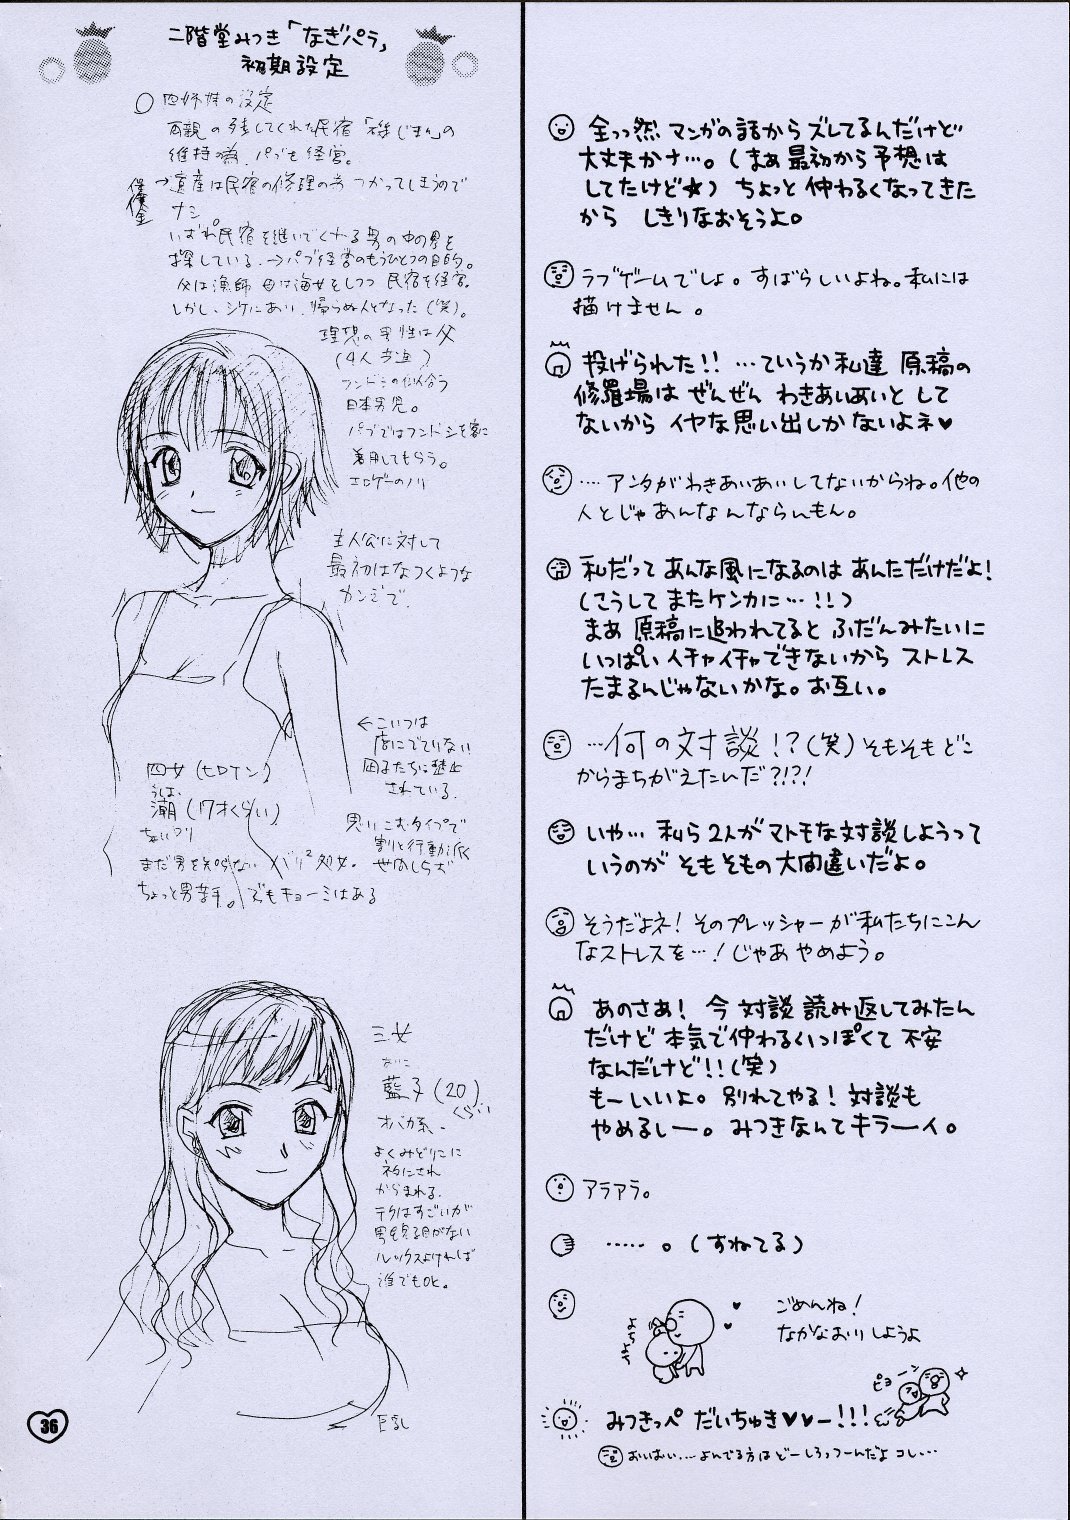 二階堂みつき「なぎパラ」
初期設定
○四姉妹の設定
両親の残してくれた民宿「磯じまん」の
維持の為、パブを経営。
→遺産は民宿の修理の方 つかってしまうので
ナシ
いずれ民宿を継いでくれる男の中の男を
探している。→パブ経営のもうひとつの目的。
父は漁師 母は海女をしつつ 民宿を経営。
しかし、シケにあい、帰らぬ人となった(笑)。
理想の男性は父
(4人共通)
フンドシの似合う
日本男児。
パブではフンドシを客に
着用してもらう。
エロゲーのノリ
主人公に対して
最初はなつくような
カンジで。
←こいつは
店にでていない
姉たちに禁止
されている。
四女(ヒロイン)
うしお
潮(17才くらい)
まだ男を知らない バリ²処女。
ちょっと男苦手。でもキョーミはある
思いこむタイプで
割と行動派
世間しらず
三女
あいこ
藍子(20)
くらい
オバカ系。
よくみどりこに
ネタにされ
からまれる。
テクはすごいが
男を見る目がない
ルックスよければ
誰でもOK。
巨乳
36
全っっ然 マンガの話から ズレてるんだけど
大丈夫かナ…。(まあ 最初から予想は
してたけど☆) ちょっと 仲わるくなってきた
から しきりなおそうよ。
ラブゲームでしょ。すばらしいよね。私には
描けません。
投げられた!! …ていうか 私達 原稿の
修羅場は ぜんぜん わきあいあいと して
ないから イヤな思い出しか ないよネ♥
…. アンタが わきあいあいしてないからね。他の
人とじゃ あんなんならんもん。
私だって あんな風になるのは あんただけだよ!
(こうして またケンカに…!!)
まあ 原稿に追われてると ふだんみたいに
いっぱい イチャイチャできないから ストレス
たまるんじゃないかな。お互い。
…何の対談!?(笑) そもそもどこ
からまちがえたんだ?!?!
いや… 私ら 2人が マトモな対談しようって
いうのが そもそもの大間違いだよ。
そうだよネ! そのプレッシャーが 私たちにこん
なストレスを…! じゃあ やめよう。
あのさあ! 今 対談 読み返してみたん
だけど 本気で仲わるくいっぽくて 不安
なんだけど!!(笑)
もーいいよ。別れてやる! 対談も
やめるしー。みつきなんて キラーイ。
アラアラ。
…… 。(すねてる)
ごめんね!
なかなおり しようよ
よしよし
ピョーン
みつきっぺ だいちゅき♥♥ー!!!
おいおい… よんでる方は どーしろっつーんだよ コレ…